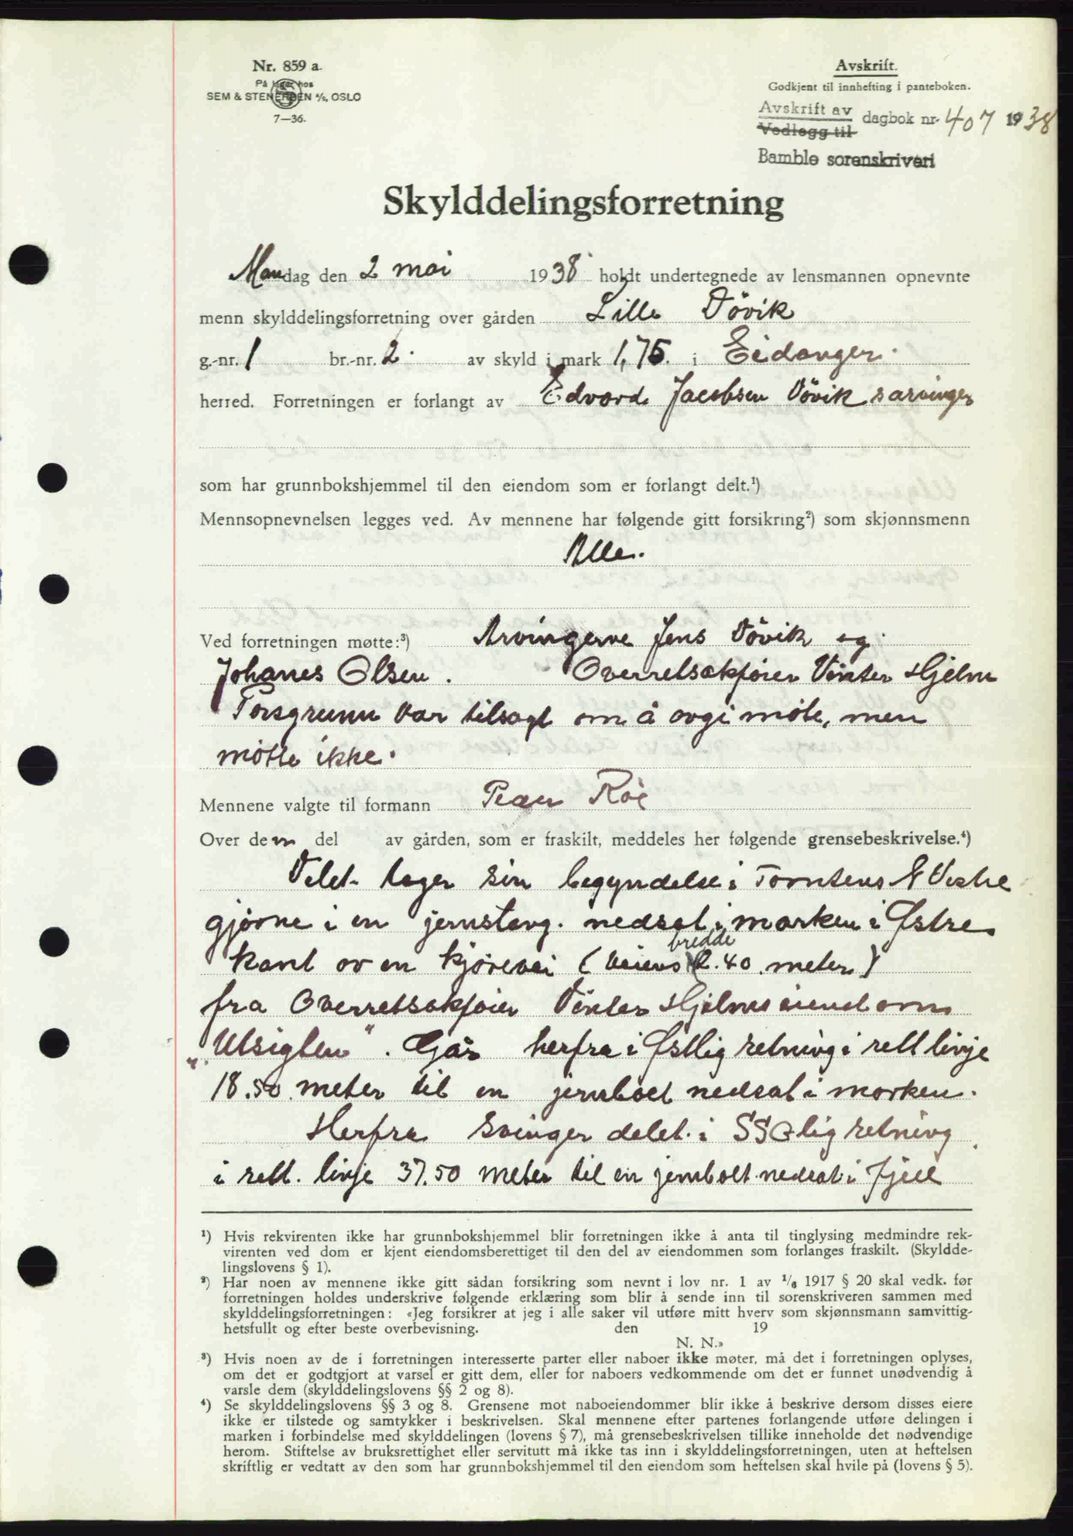 Nr. 859 a.
På lager hos
SEM & STENERSEN A/S, OSLO
7—36.
Avskrift.
Godkjent til innhefting i panteboken.
Avskrift av
Vedlegg til
dagbok nr. 407 1938
Bamble sorenskriveri
Skylddelingsforretning
Mandag den 2 mai 1938 holdt undertegnede av lensmannen opnevnte
menn skylddelingsforretning over gården Lille Døvik
g.-nr. 1 br.-nr. 2. av skyld i mark 1,75. i Eidanger.
herred. Forretningen er forlangt av Edvard Jacobsen Døvik s arvinger
som har grunnbokshjemmel til den eiendom som er forlangt delt.¹)
Mennsopnevnelsen legges ved. Av mennene har følgende gitt forsikring²) som skjønnsmenn
Alle.
Ved forretningen møtte:³) Arvingerne Jens Døvik og
Johanes Olsen. Overretsakfører Vinter Hjelm
Porsgrunn var tilsagt om å avgi møte, men
møtte ikke.
Mennene valgte til formann Peder Röe
Over dem del av gården, som er fraskilt, meddeles her følgende grensebeskrivelse.⁴)
Delet tager sin begyndelse i Tomtens N Vestre
gjørne i en jernstang. nedsat i marken i Østre
kant av en kjørevei (veiens bredde 2.40 meter)
fra Overretsakfører Vinter Hjelms eiendom
"Utsigten". Går herfra i Østlig retning i rett linje
18.50 meter til en jernbolt nedsat i marken.
Herfra svinger delet i SSO lig retning
i rett. linje 37.50 meter til en jernbolt nedsat i fjell
¹) Hvis rekvirenten ikke har grunnbokshjemmel blir forretningen ikke å anta til tinglysing medmindre rek-
virenten ved dom er kjent eiendomsberettiget til den del av eiendommen som forlanges fraskilt. (Skyldde-
lingslovens § 1).
²) Har noen av mennene ikke gitt sådan forsikring som nevnt i lov nr. 1 av 1/6 1917 § 20 skal vedk. før
forretningen holdes underskrive følgende erklæring som blir å sende inn til sorenskriveren sammen med
skylddelingsforretningen: «Jeg forsikrer at jeg i alle saker vil utføre mitt hverv som skjønnsmann samvittig-
hetsfullt og efter beste overbevisning. den 19
N. N.»
³) Hvis noen av de i forretningen interesserte parter eller naboer ikke møter, må det i forretningen oplyses,
om det er godtgjort at varsel er gitt dem, eller for naboers vedkommende om det er funnet unødvendig å
varsle dem (skylddelingslovens §§ 2 og 8).
⁴) Se skylddelingslovens §§ 3 og 8. Grensene mot naboeiendommer blir ikke å beskrive dersom disses eiere
ikke er tilstede og samtykker i beskrivelsen. Skal mennene efter partenes forlangende utføre delingen i
marken i forbindelse med skylddelingen (lovens § 7), må grensebeskrivelsen tillike inneholde det nødvendige
herom. Stiftelse av bruksrettighet eller servitutt må ikke tas inn i skylddelingsforretningen, uten at heftelsen
skriftlig er vedtatt av den som har grunnbokshjemmel til den eiendom som heftelsen skal hvile på (lovens § 5).